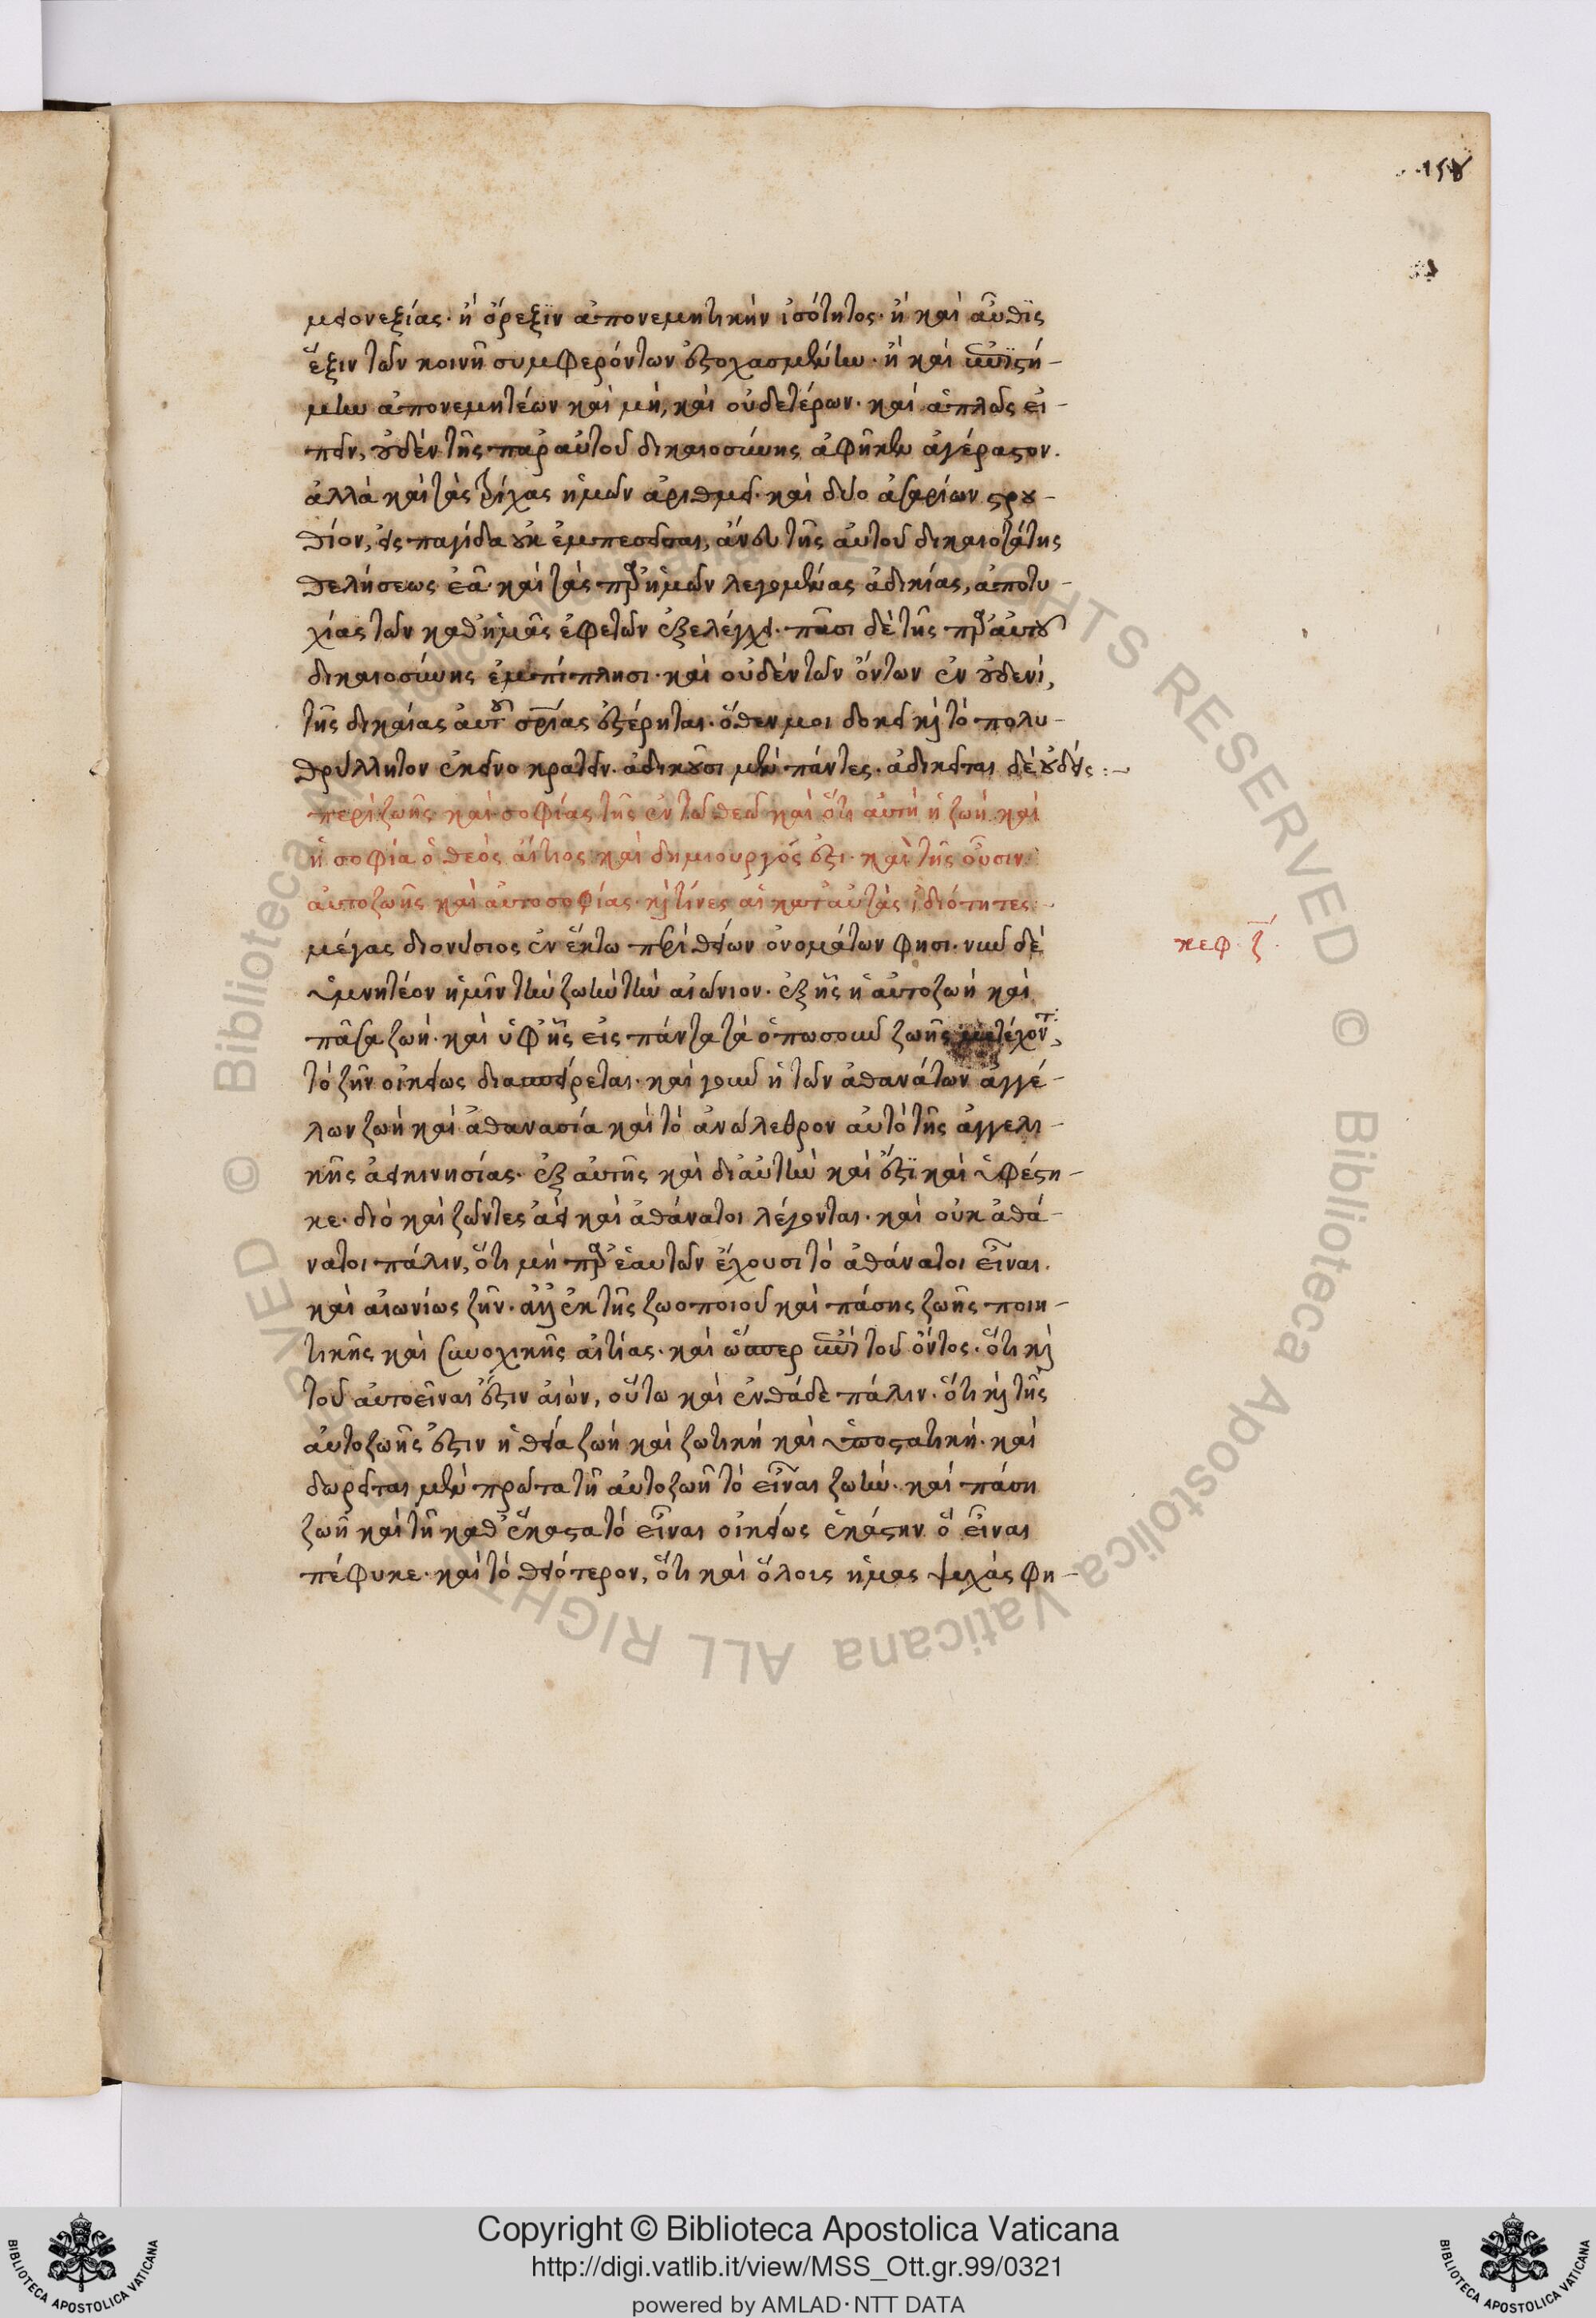 158
μειονεξίας· ἢ ὄρεξιν ἀπονεμητικὴν ἰσότητος· ἢ καὶ αὖθις
ἕξιν τῶν κοινῇ συμφερόντων ἐστοχασμένην· ἢ καὶ ἐπιστή-
μην ἀπονεμητέων καὶ μή, καὶ οὐδετέρων· καὶ ἁπλῶς εἰ-
πεῖν, οὐδὲν τῆς παρ' αὐτοῦ δικαιοσύνης ἀφῆκεν ἀγέραστον.
ἀλλὰ καὶ τὰς τρίχας ἡμῶν ἀριθμεῖ· καὶ δύο ἀσαρίων στρου-
θίον, εἰς παγίδα οὐκ ἐμπεσεῖται, ἄνευ τῆς αὐτοῦ δικαιοτάτης
θελήσεως ἐᾶ· καὶ τὰς παρ' ἡμῶν λεγομένας ἀδικίας, ἀποτυ-
χίας τῶν καθ' ἡμᾶς ἐφετῶν ἐξελέγχει· πᾶσι δὲ τῆς παρ' αὐτοῦ
δικαιοσύνης ἐμπίπλησι· καὶ οὐδὲν τῶν ὄντων ἐν οὐδενὶ,
τῆς δικαίας αὐτοῦ σωτηρίας ἐστέρηται· ὅθεν μοι δοκεῖ καὶ τὸ πολυ-
θρύλλητον ἐκεῖνο κρατεῖν· ἀδικοῦσι μὲν πάντες· ἀδικεῖται δὲ οὐδείς:~
περὶ ζωῆς καὶ σοφίας τῆς ἐν τῷ θεῷ καὶ ὅτι αὐτὴ ἡ ζωὴ καὶ
ἡ σοφία ὁ θεὸς αἴτιος καὶ δημιουργός ἐστι· καὶ τῆς οὖσιν
αὐτοζωῆς καὶ αὐτοσοφίας· καὶ τίνες αἱ κατ' αὐτὰς ἰδιότητες:~
κεφ. ζ.
μέγας διονύσιος ἐν ἕκτω περὶ θείων ὀνομάτων φησι· νῦν δὲ
ὑμνητέον ἡμῖν τὴν ζωὴν τὴν αἰώνιον· ἐξ ἧς ἡ αὐτοζωὴ καὶ
πᾶσα ζωή· καὶ ὑφ' ἧς εἰς πάντα τὰ ὁπωσοῦν ζωῆς μετέχοντα,
τὸ ζῆν οἰκείως διασπείρεται· καὶ γοῦν ἡ τῶν ἀθανάτων ἀγγέ-
λων ζωὴ καὶ ἀθανασία καὶ τὸ ἀνώλεθρον αὐτὸ τῆς ἀγγελι-
κῆς ἀεικινησίας· ἐξ αὐτῆς καὶ δι' αὐτὴν καὶ ἔστι καὶ ὑφέστη-
κε· διὸ καὶ ζῶντες ἀεὶ καὶ ἀθάνατοι λέγονται· καὶ οὐκ ἀθά-
νατοι πάλιν, ὅτι μὴ παρ' ἑαυτῶν ἔχουσι τὸ ἀθάνατοι εἶναι.
καὶ αἰωνίως ζῆν· ἀλλ' ἐκ τῆς ζωοποιοῦ καὶ πάσης ζωῆς ποιη-
τικῆς καὶ συνοχικῆς αἰτίας· καὶ ὥσπερ ἐπὶ τοῦ ὄντος· ὅτι καὶ
τοῦ αὐτοεῖναι ἔστιν αἰών, οὕτω καὶ ἐνθάδε πάλιν· ὅτι καὶ τῆς
αὐτοζωῆς ἔστιν ἡ θεία ζωὴ καὶ ζωτικὴ καὶ ὑποστατική· καὶ
δωρεῖται μὲν πρῶτα τῆ αὐτοζωῆ τὸ εἶναι ζωήν· καὶ πάση
ζωῆ καὶ τῆ καθ' ἕκαστα τὸ εἶναι οἰκείως ἑκάστην ὃ εἶναι
πέφυκε· καὶ τὸ θειότερον, ὅτι καὶ ὅλους ἡμας ψυχάς φη-
© Biblioteca Apostolica Vaticana ALL RIGHTS RESERVED
Copyright © Biblioteca Apostolica Vaticana
http://digi.vatlib.it/view/MSS_Ott.gr.99/0321
powered by AMLAD·NTT DATA
BIBLIOTECA APOSTOLICA VATICANA
BIBLIOTECA APOSTOLICA VATICANA